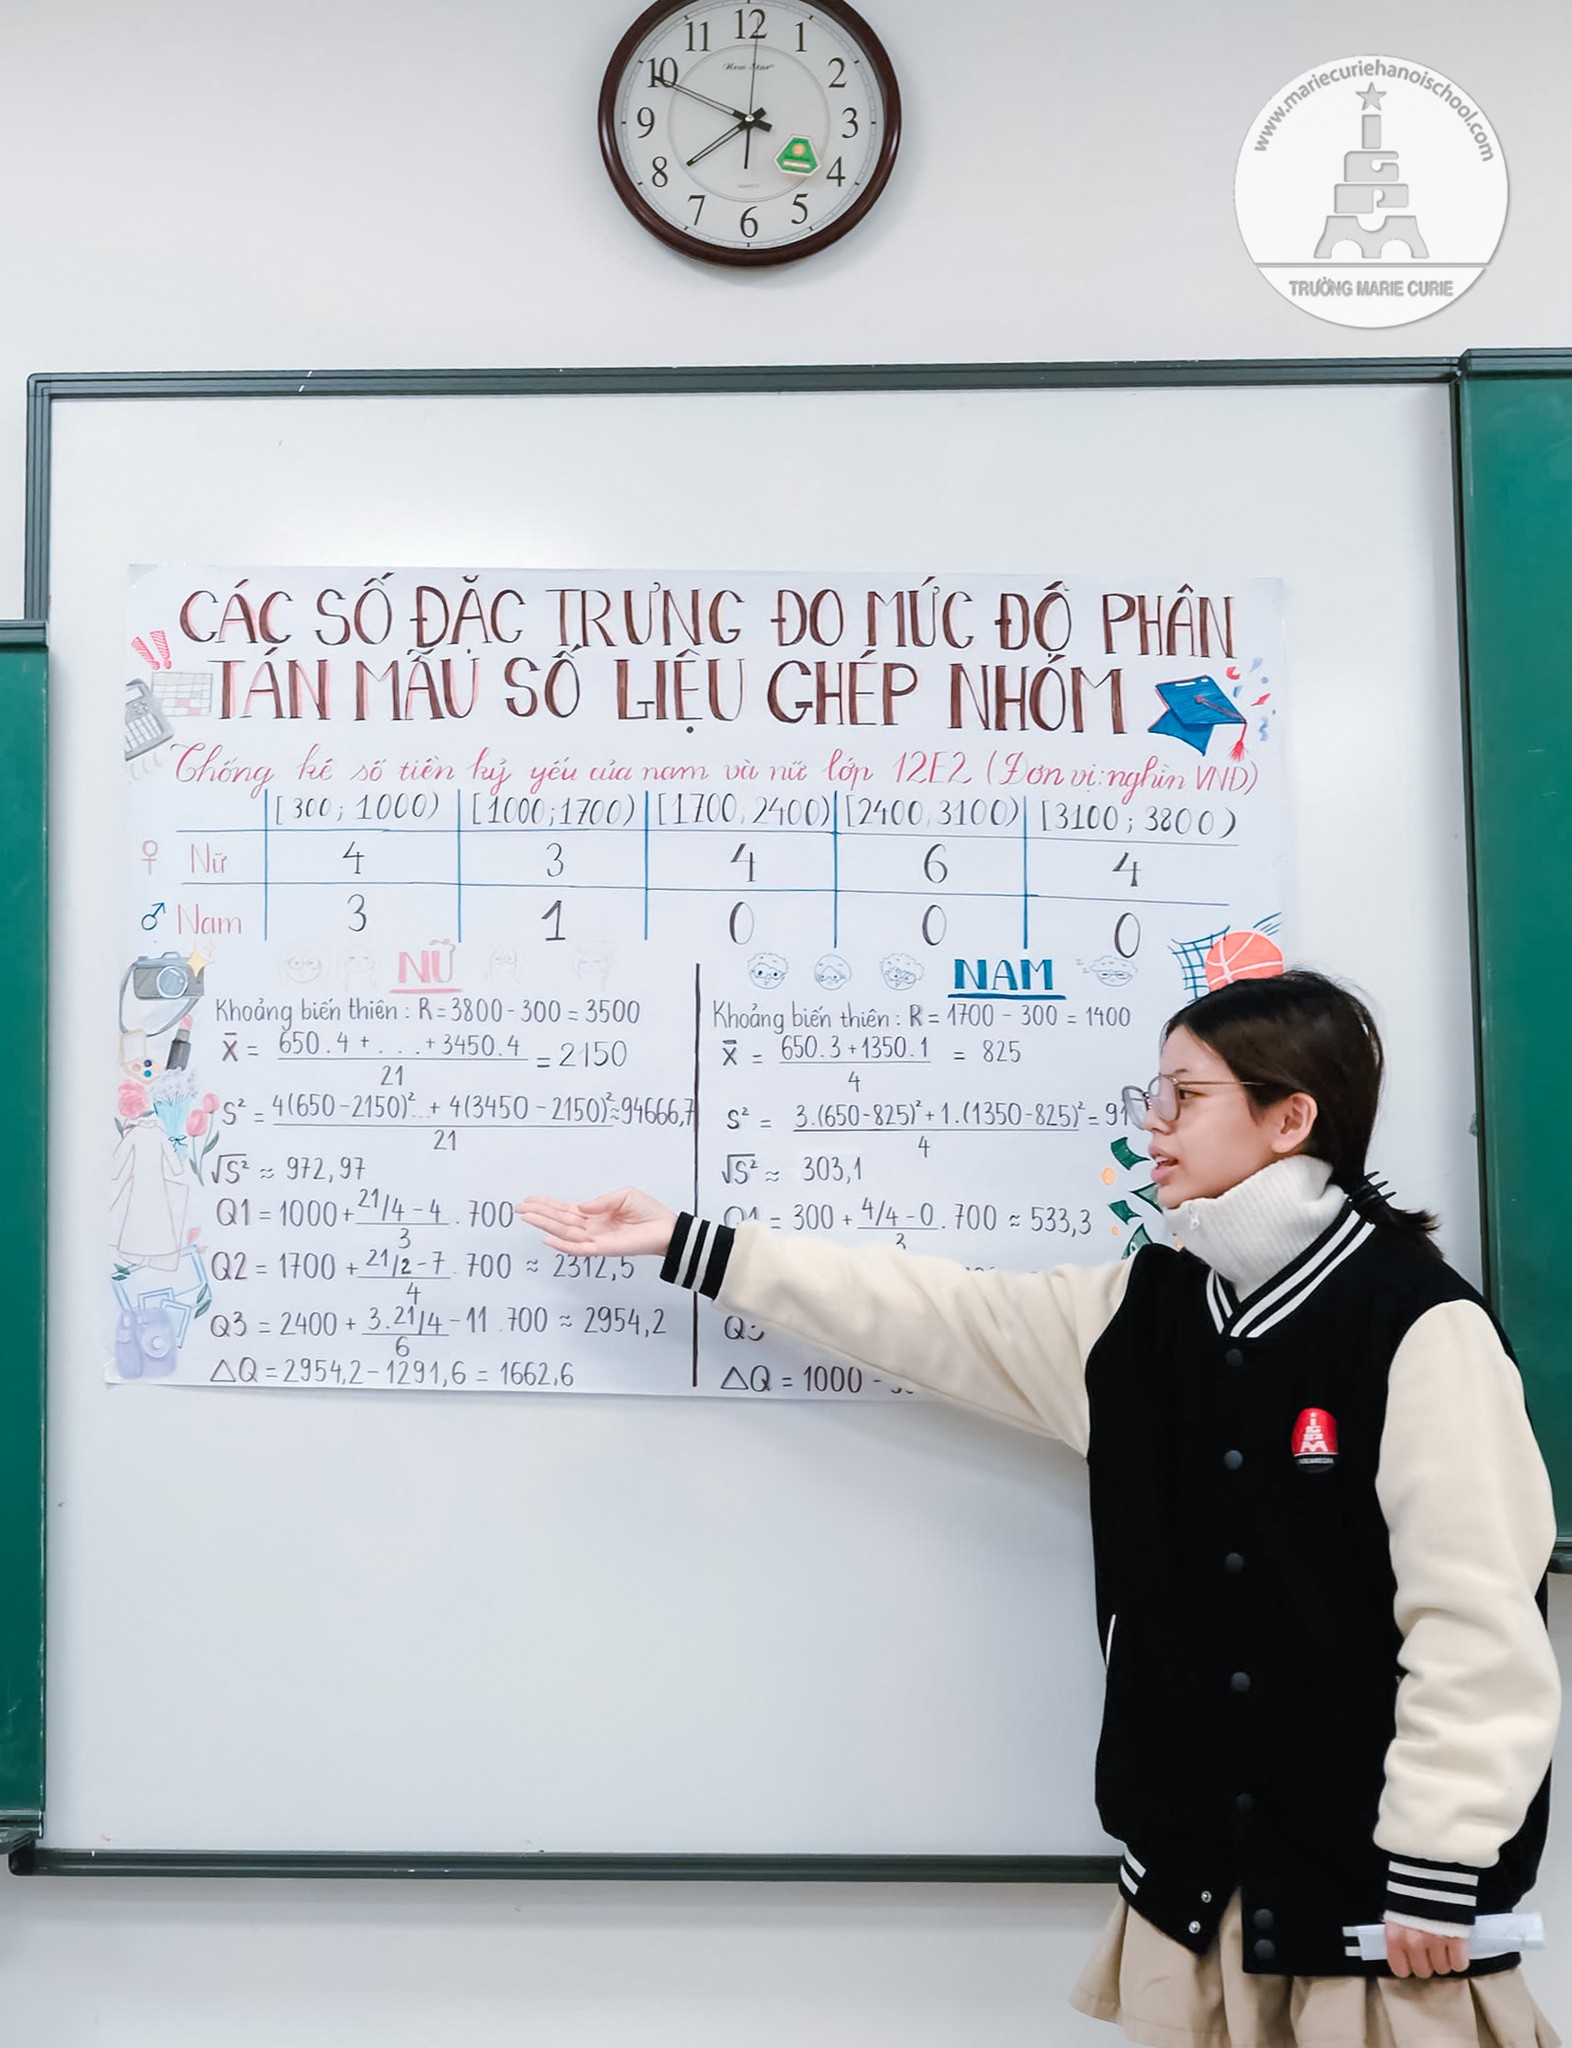 11 12 1
10 2
9 3
8 4
7 6 5
New Star
QUARTZ
www.mariecuriehanoischool.com
TRƯỜNG MARIE CURIE
CÁC SỐ ĐẶC TRƯNG ĐO MỨC ĐỘ PHÂN
TÁN MẪU SỐ LIỆU GHÉP NHÓM
Thống kê số tiền kỷ yếu của nam và nữ lớp 12E2 (Đơn vị: nghìn VNĐ)
[300; 1000) [1000;1700) [1700; 2400) [2400; 3100) [3100; 3800)
♀ Nữ 4 3 4 6 4
♂ Nam 3 1 0 0 0
NỮ
Khoảng biến thiên: R = 3800 - 300 = 3500
X̄ = 650.4 + ... + 3450.4 / 21 = 2150
S² = 4(650 - 2150)² .. + 4(3450 - 2150)² / 21 ≈ 94666,7
√S² ≈ 972,97
Q1 = 1000 + 21/4 - 4 / 3 . 700
Q2 = 1700 + 21/2 - 7 / 4 . 700 ≈ 2312,5
Q3 = 2400 + 3.21/4 - 11 / 6 . 700 ≈ 2954,2
△Q = 2954,2 - 1291,6 = 1662,6
NAM
Khoảng biến thiên: R = 1700 - 300 = 1400
X̄ = 650.3 + 1350.1 / 4 = 825
S² = 3.(650-825)² + 1.(1350-825)² / 4 = 91
√S² ≈ 303,1
Q1 = 300 + 4/4 - 0 / 3 . 700 ≈ 533,3
Q3
△Q = 1000 -